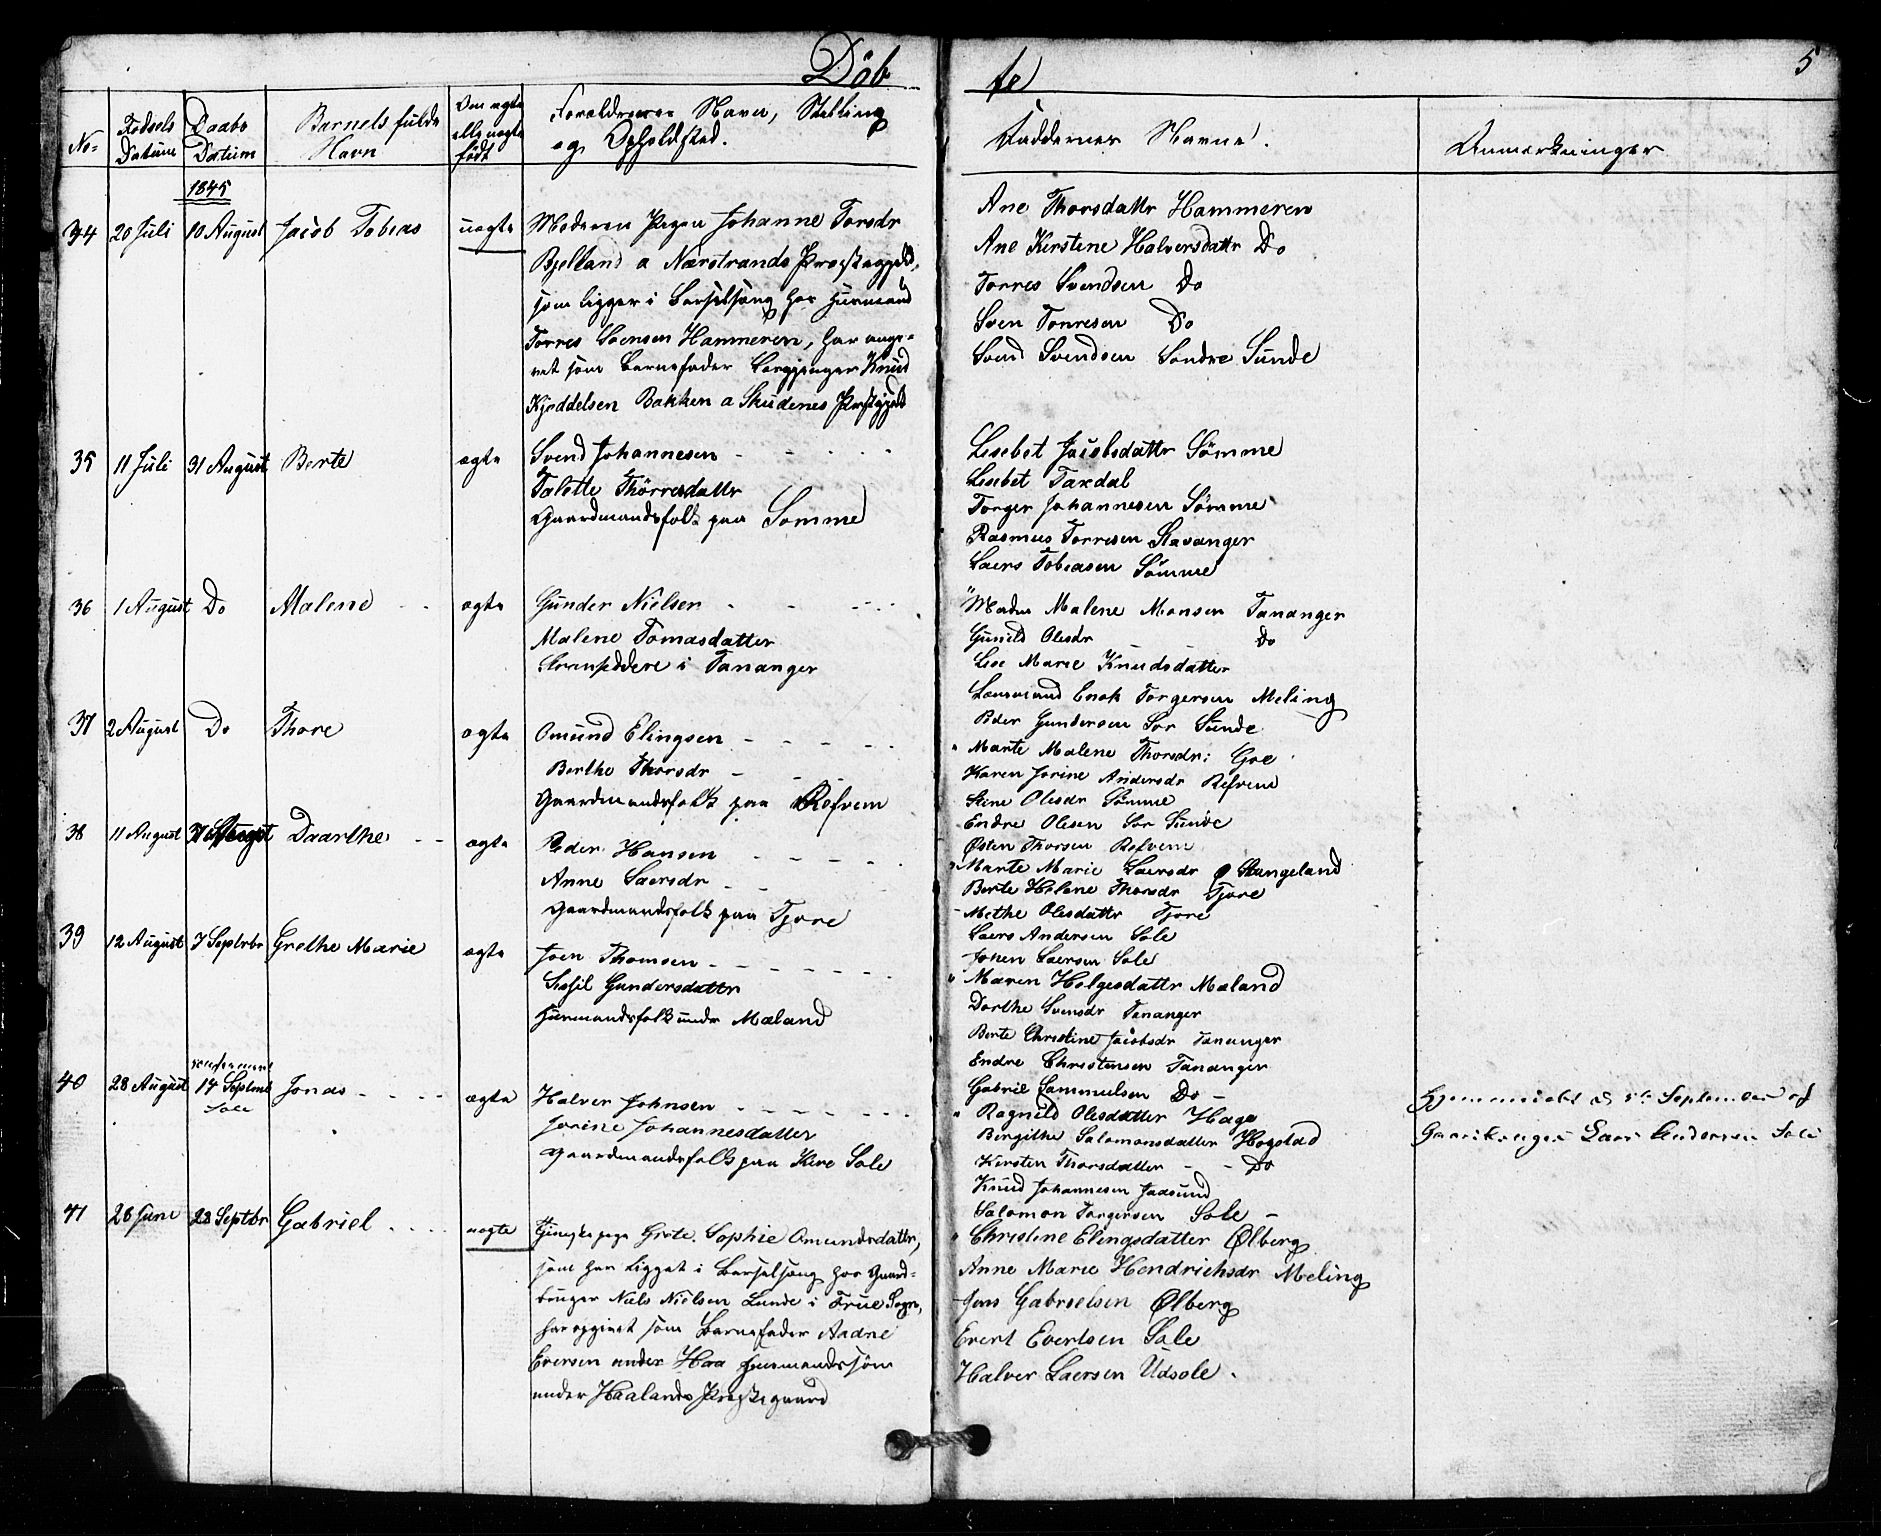 Döb
te
5
No-
Födsels Datum
Daabs Datum
Barnets fulde Navn
Om ægte eller uægte født
Forældrenes Navn, Stilling og Opholdsted.
Faddernes Navne.
Anmærkninger
1845
34 20 Juli 10 August Jacob Tobias uægte Moderen Pigen Johanne Torsdr
Bjelland a Nærstrands Præstegjeld,
som ligger i Barselseng hos Huusmand
Torres Svensen Hammeren, har angi-
vet som Barnefader Knud
Kjeddelsen Bakken a Skudenes Præstegjeld
Ane Thorsdattr Hammeren
Ane Kirstine Halversdattr Do
Torres Svendsen Do
Sven Torresen Do
Svend Svendsen Sondre Sunde
35 11 Juli 31 August Berte ægte Svend Johannesen
Talette Thörresdattr
Gaardmandsfolk paa Somme
Lisebet Jacobsdattr Sömme
Lisebet Taxdal
Torger Johannesen Sömme
Rasmus Torresen Stavanger
Laers Tobiasen Sömme
36 1 August Do Malene ægte Gunder Nielsen
Malene Tomasdatter
Strandsiddere i Tananger
Madm Malene Monsen Tananger
Gunild Olesdr Do
Lise Marie Knudsdatter
Lensmand Enok Torgersen Meling
Peder Gundersen Sor Sunde
37 2 August Do Thore ægte Omund Elingsen
Berthe Thorsdr
Gaardmandsfolk paa Refvem
Marte Malene Thorsdr: Goe
Karen Jorine Andersdr Refvem
Stine Olesdr Sömme
Endre Olesen Sor Sunde
Østen Thorsen Refvem
38 11 August 31 August Daarthe ægte Peder Hansen
Anne Laersdr
Gaardmandsfolk paa Tjore
Marte Marie Laersdr Stangeland
Berte Helene Thorsdr Tjore
Methe Olesdattr Tjore
Laers Andersen Sole
Johen Laersen Sole
39 12 August 7 Septbr Grethe Marie ægte Joen Thomsen
Sissil Gundersdattr
Huusmandsfolk under Mæland
Maren Helgesdattr Mæland
Dorthe Svensdr Tananger
Berte Christine Jacobsdr Tananger
Endre Christensen Tananger
Gabriel Sammuelsen Do
40 28 August 14 Septmb
Sole
Jonas ægte Halver Johnsen
Jorine Johannesdatter
Gaardmandsfolk paa Sole
Ragnild Olesdatter Haga
Bergithe Salomonsdatter Hogstad
Kirsten Thorsdatter Do
Knud Johannesen Jaasund
Salomon Torgersen Sole
Hjemmedøbt d September af
Gaardbruger Lars Andersen Sole
41 26 Juni 28 Septbr Gabriel uægte Pige Grete Sophie Omundsdattr,
som har ligget i Barselseng hos Gaard-
bruger Niels Nielsen Lunde i Frue Sogn,
har opgivet som Barnefader Aadne
Eversen under Haa Huusmandssøn
under Haalands Præstegaard
Christine Elingsdatter Ølberg
Anne Marie Hendrichsdr Meling
Jens Gabrielsen Ølberg
Evert Evertsen Sole
Halver Laersen Udsole.